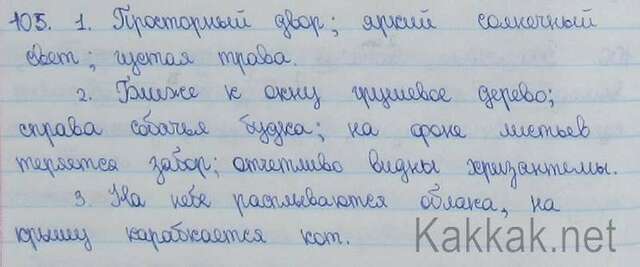 105. 1. Просторный двор; яркий солнечный
свет; густая трава.
2. Ближе к окну грушевое дерево;
справа собачья будка; на фоне листьев
теряется забор; отчетливо видны хризантемы.
3. На небе расплываются облака, на
крышу карабкается кот.
Kakkak.net